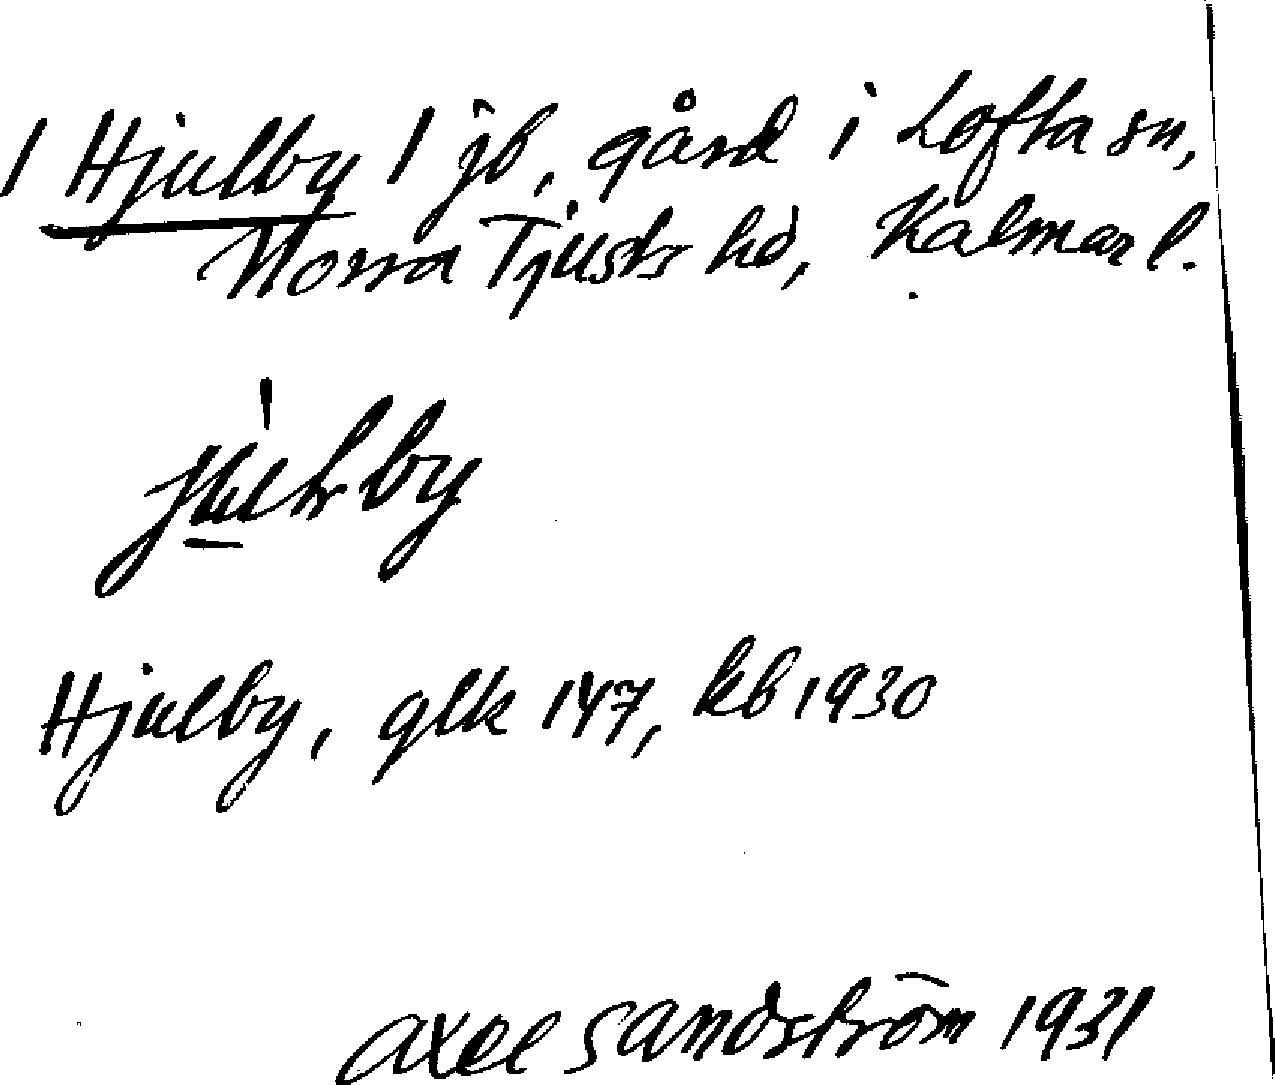 / Hjulby / jb, gård i Lofta sn,
Norra Tjusts hd, Kalmar l.
Hjulby, glk 147, kb 1930
Axel Sandström 1931